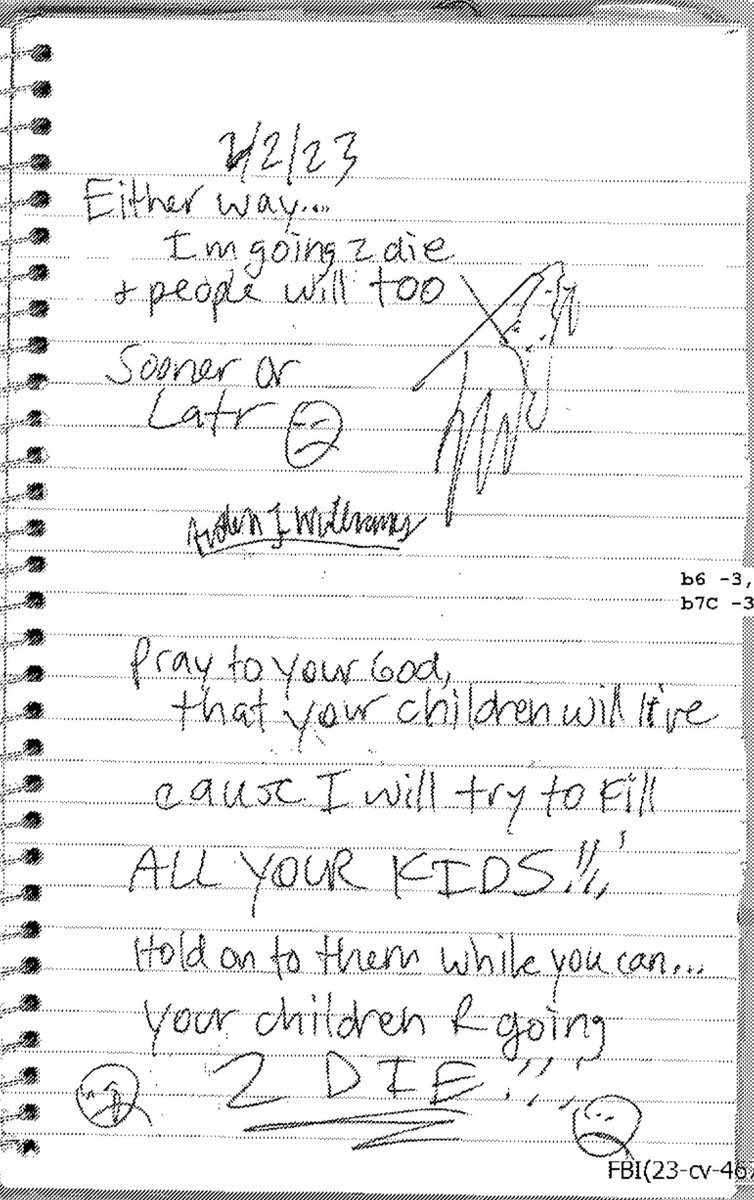 2/2/23
Either way...
Im going 2 die
+ people will too
Sooner or
Latr
b6 -3,
b7C -3
Pray to your God,
that your children will live
cause I will try to kill
ALL YOUR KIDS!!!
Hold on to them while you can...
your children R going
2 DIE!!!
FBI(23-cv-467